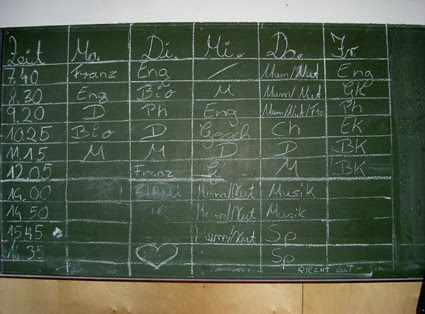 Zeit Mo. Di. Mi. Do. Fr.
7.40 Franz Eng / Mum/Nut Eng
8.30 Eng Bio M Mum/Nut GK
9.20 D Ph Eng Mum/Nut/Fra Ph
10.25 Bio D Gesch Ch EK
11.15 M M D D BK
12.05 Franz M BK
14.00 Mum/Nut Musik
14.50 Mum/Nut Musik
15.45 Mum/Nut Sp
16.35 Sp
RIECHT GUT